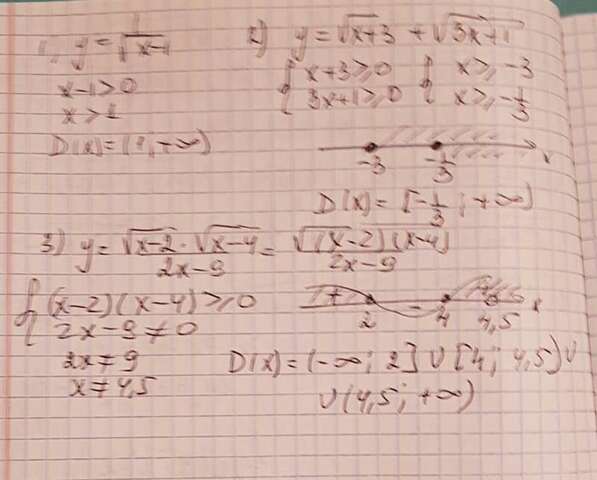 1) y = 1/√(x-1)
x-1>0
x>1
D(x)=(1;+∞)
2) y = √(x+3) + √(3x+1)
{ x+3⩾0 { x⩾-3
{ 3x+1⩾0 { x⩾-1/3
-3 -1/3 x
D(x)=[-1/3; +∞)
3) y = √(x-2)·√(x-4)/(2x-9) = √((x-2)(x-4))/(2x-9)
{ (x-2)(x-4)⩾0
{ 2x-9≠0
2x≠9
x≠4,5
+ - +
2 4 4,5 x
D(x)=(-∞; 2]∪[4; 4,5)∪
∪(4,5; +∞)